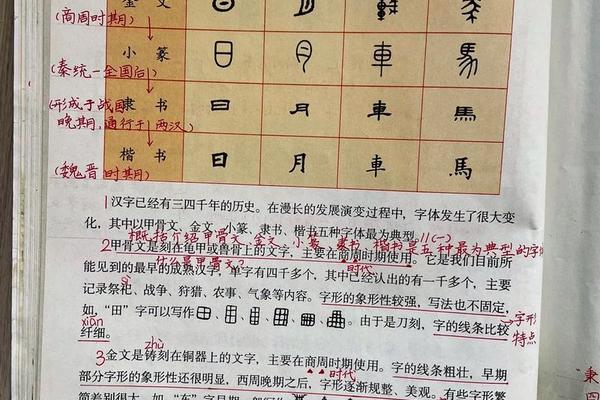 金 文
(商周时期)
小 篆
日 月 車 馬
(秦统一全国后)
隶 书
日 月 車 馬
(形成于战国
晚期,通行于两汉)
楷 书
日 月 車 馬
(魏晋时期)
1汉字已经有三四千年的历史。在漫长的发展演变过程中,字体发生了很大变
化,其中以甲骨文、金文、小篆、隶书、楷书五种字体最为典型。//(一)
概括介绍甲骨文、金文、小篆、隶书、楷书是五种最为典型的字体
2甲骨文是刻在龟甲或兽骨上的文字,主要在商周时期使用。它是我们目前所
什么是甲骨文? 时代
能见到的最早的成熟汉字,单字有四千多个,其中已经认出的有一千多个,主要
sì
记录祭祀、战争、狩猎、农事、气象等内容。字形的象形性较强,写法也不固定,
如,“田”字可以写作、、、、、。由于是刀刻,字的线条比较
字形
特点
xiān
纤细。
zhù
3金文是铸刻在铜器上的文字,主要在商周时期使用。字的线条粗壮,早期
时代
部分字形的象形性还很明显,西周晚期之后,字形逐渐规整、美观。有些字形繁
简差别很大,如,“车”字早期